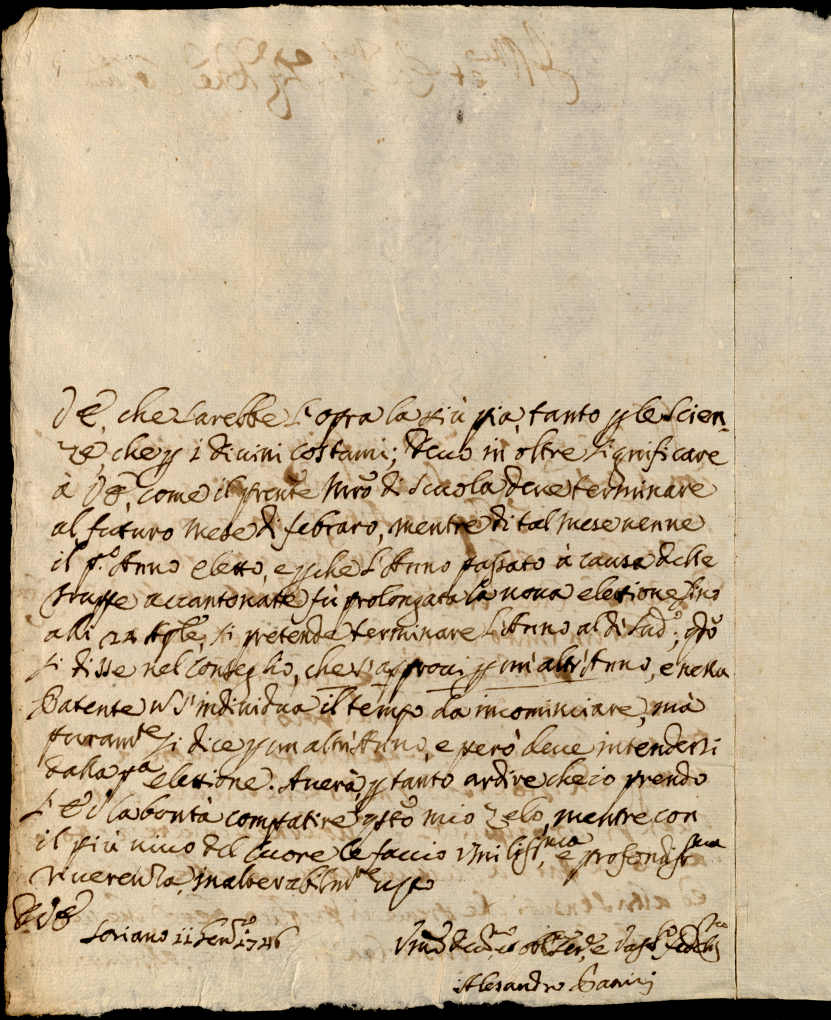 V E, che sarebbe l'opra la più pia, tanto p le Scien-
ze, che p i divini costumi; devo in oltre significare
à V E, come il prente Mro di Scuola deve terminare
al futuro Mese di febraro, mentre di tal Mese venne
il p.o Anno eletto, e p che l'Anno passato à causa delle
truppe accantonate fù prolongata la nova elezione sino
alli 24 Aple, si pretende terminare l'Anno al dì sud.o; qsto
si disse nel Conseglio, che s'approvi p un'altr'Anno, e nella
Patente n s'individua il tempo da incominciare, mà
puramte si dice p un altr'Anno, e però deve intendersi
dalla pa elezione. Averà p tanto ardire che io prendo
l'E V la bontà compatire qsto mio zelo, mentre con
il più vivo del Cuore le faccio Umilissma, e profondissma
riverenza, inalterabilmte
Di V E
Soriano 11 Genro 1746
Umo Devmo obbmo Serre, e Vasso fedelmo
Alesandro